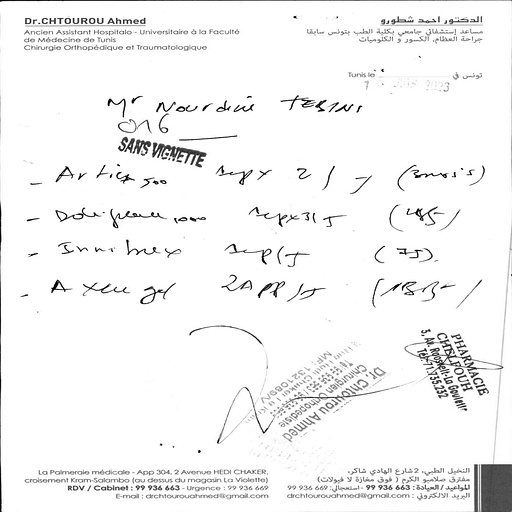 Dr.CHTOUROU Ahmed
Ancien Assistant Hospitalo - Universitaire à la Faculté
de Médecine de Tunis
Chirurgie Orthopédique et Traumatologique
الدكتور احمد شطورو
مساعد إستشفائي جامعي بكلية الطب بتونس سابقا
جراحة العظام، الكسور و الكلوميات
Tunis le تونس في
Mr Nourdine TEBINI
SANS VIGNETTE
- Artiex 500 1cp x 2 / J (3mois)
- Doliprane 1000 1cp x3/J
- Innibrex 1cp/J (7J).
- Axen gel 2App/J
PHARMACIE
CHELFOUH
3, Av. Roosvelt-La Goulette
Tél: 71 735.232
Dr. Chtourou Ahmed
Chirurgien Orthopédiste
La Palmeraie médicale - App 304, 2 Avenue HEDI CHAKER,
croisement Kram-Salambo (au dessus du magasin La Violette)
RDV / Cabinet : 99 936 663 - Urgence : 99 936 669
E-mail : drchtourouahmed@gmail.com
النخيل الطبي، 2 شارع الهادي شاكر،
مفترق صلامبو الكرم ( فوق مغازة لا فيولات)
المواعيد / العيادة : 663 936 99 - استعجالي: 669 936 99
البريد الالكتروني : drchtourouahmed@gmail.com